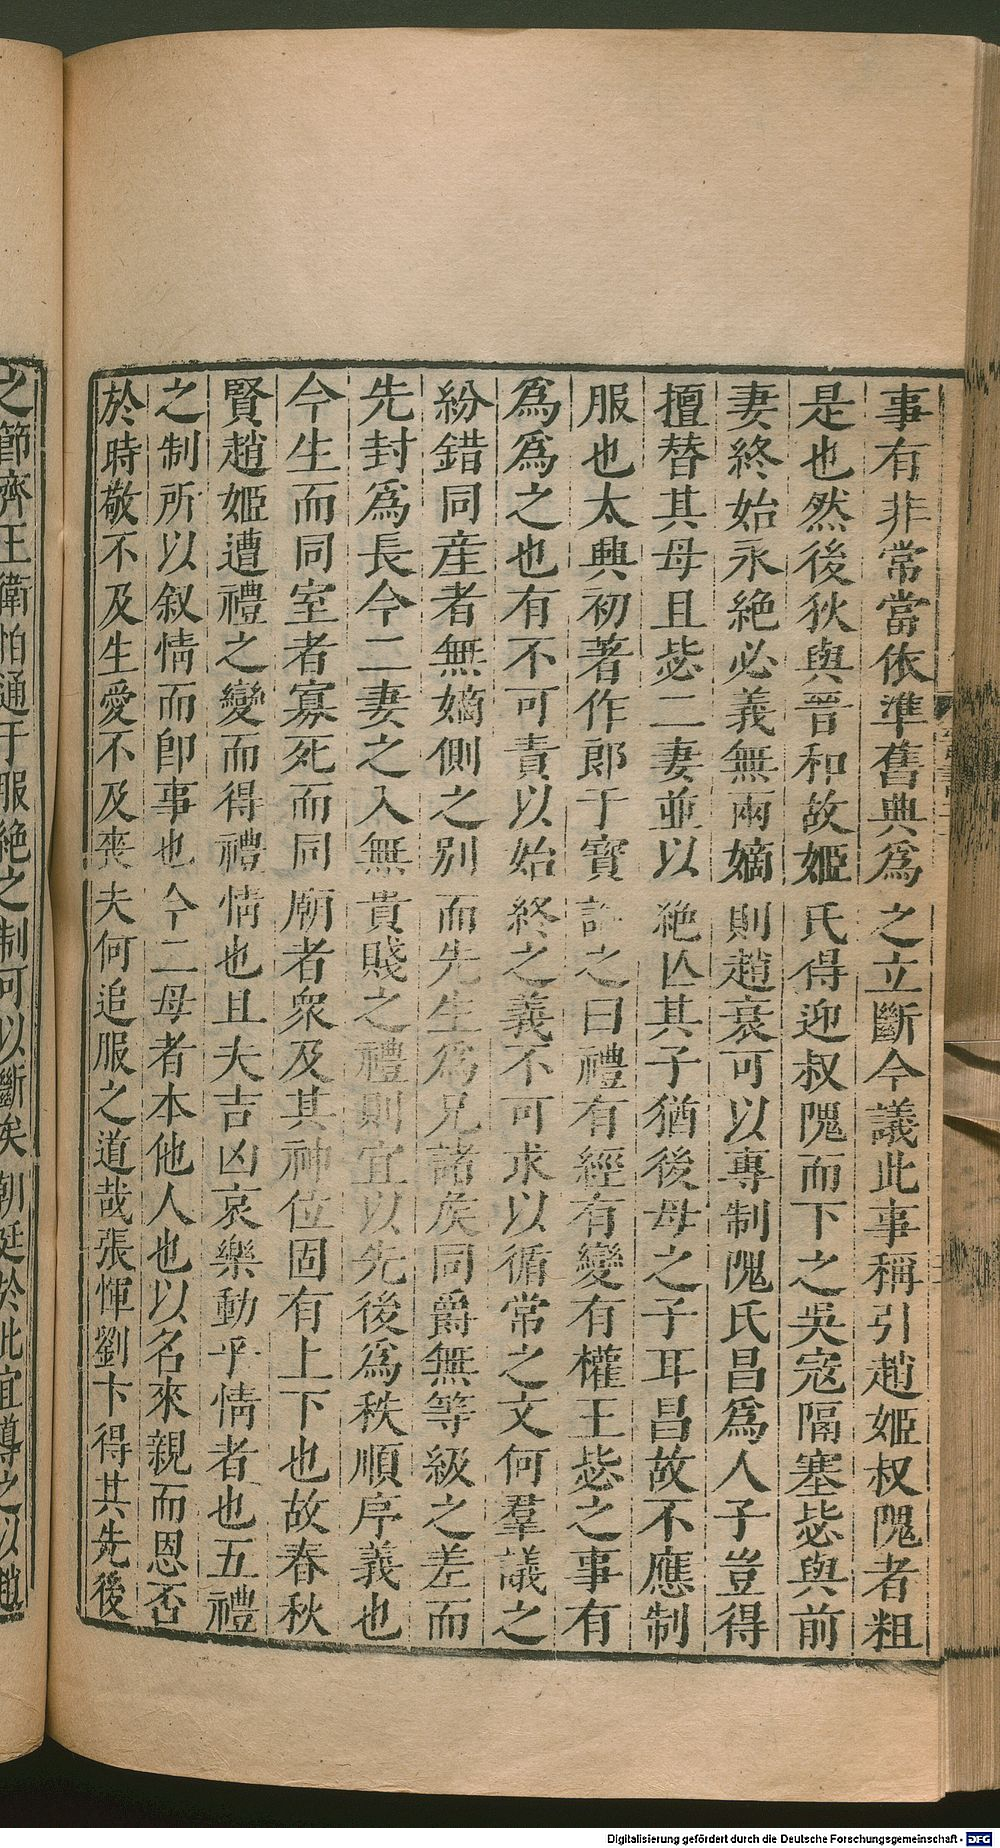 事有非常當依準舊典爲之立斷今議此事稱引趙姬叔隗者粗
是也然後狄與晉和故姬氏得迎叔隗而下之吳寇隔塞毖與前
妻終始永絶必義無兩嫡則趙衰可以專制隗氏昌爲人子豈得
擅替其母且毖二妻並以絶亾其子猶後母之子耳昌故不應制
服也太興初著作郎于寳論之曰禮有經有變有權王毖之事有
爲爲之也有不可責以始終之義不可求以循常之文何羣議之
紛錯同産者無嫡側之别而先生爲兄諸矦同爵無等級之差而
先封爲長今二妻之入無貴賤之禮則宜以先後爲秩順序義也
今生而同室者寡死而同廟者衆及其神位固有上下也故春秋
賢趙姬遭禮之變而得禮情也且夫吉凶哀樂動乎情者也五禮
之制所以叙情而卽事也今二母者本他人也以名來親而恩否
於時敬不及生愛不及喪夫何追服之道哉張惲劉卞得其先後
之節齊王衛怕通于服絶之制可以斷矣朝廷於此宜導之以趙
Digitalisierung gefördert durch die Deutsche Forschungsgemeinschaft - DFG